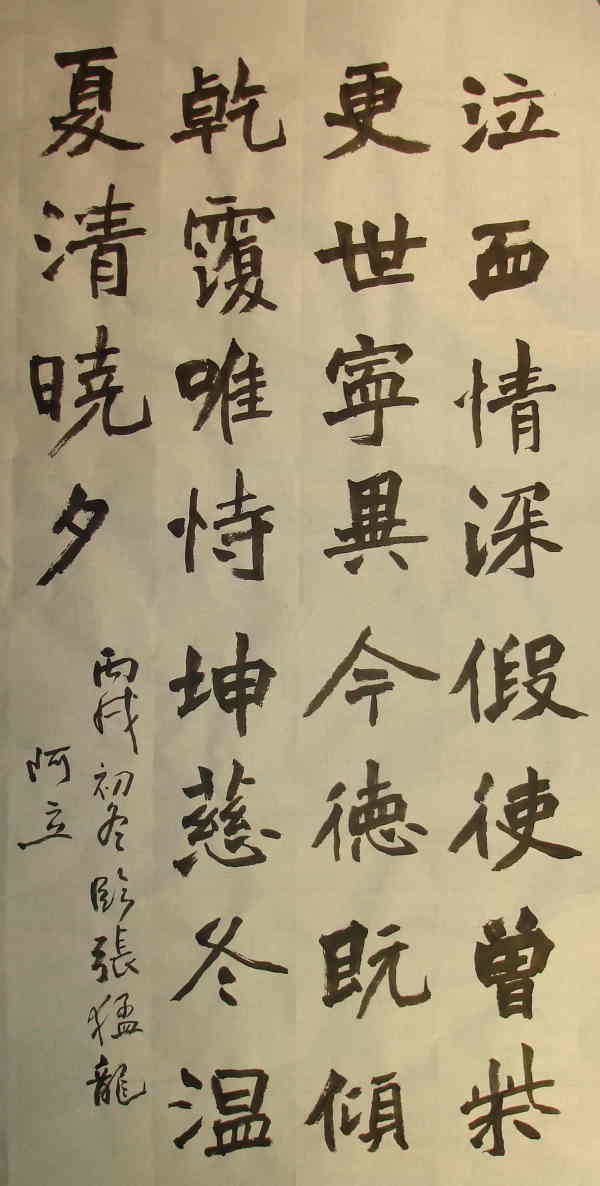 泣血情深假使曾柴
更世寧異今德既傾
乾覆唯恃坤慈冬温
夏清曉夕
丙戌初冬臨張猛龍
阿立